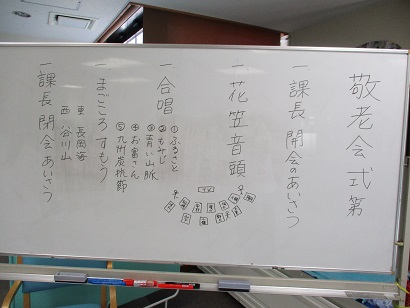 敬老会式第
一 課長 開会のあいさつ
一 花笠音頭
一 合唱
①ふるさと
②もみじ
③青い山脈
④お富さん
⑤九州炭坑節
一 まごころすもう
東 長岡海
西 谷川山
一 課長 閉会あいさつ